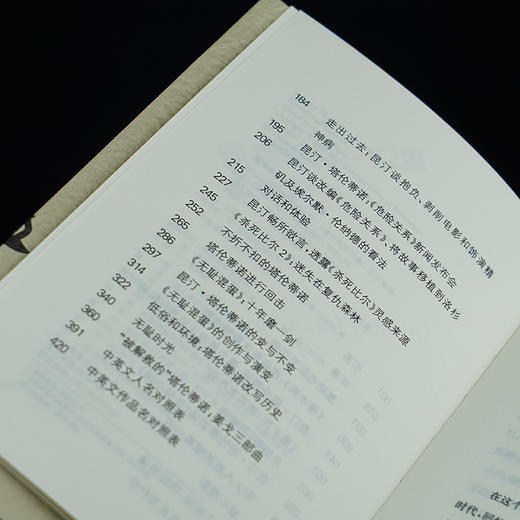 184 走出过去：昆汀谈抱负、剥削电影和饰演精
神病
195 昆汀·塔伦蒂诺：《危险关系》新闻发布会
206 昆汀谈改编《危险关系》、将故事移植到洛杉
矶及埃尔默·伦纳德的看法
215 对话和体验
227 昆汀畅所欲言：透露《杀死比尔》灵感来源
245 《杀死比尔2》：迷失在复仇森林
252 不折不扣的塔伦蒂诺
265 塔伦蒂诺进行回击
286 昆汀·塔伦蒂诺的变与不变
297 《无耻混蛋》十年磨一剑
314 《无耻混蛋》的创作与演变
322 无耻时光
340 低俗和环境：塔伦蒂诺改写历史
360 “被解救的”塔伦蒂诺：姜戈三部曲
391 中英文人名对照表
420 中英文作品名对照表
在这个
时代，回